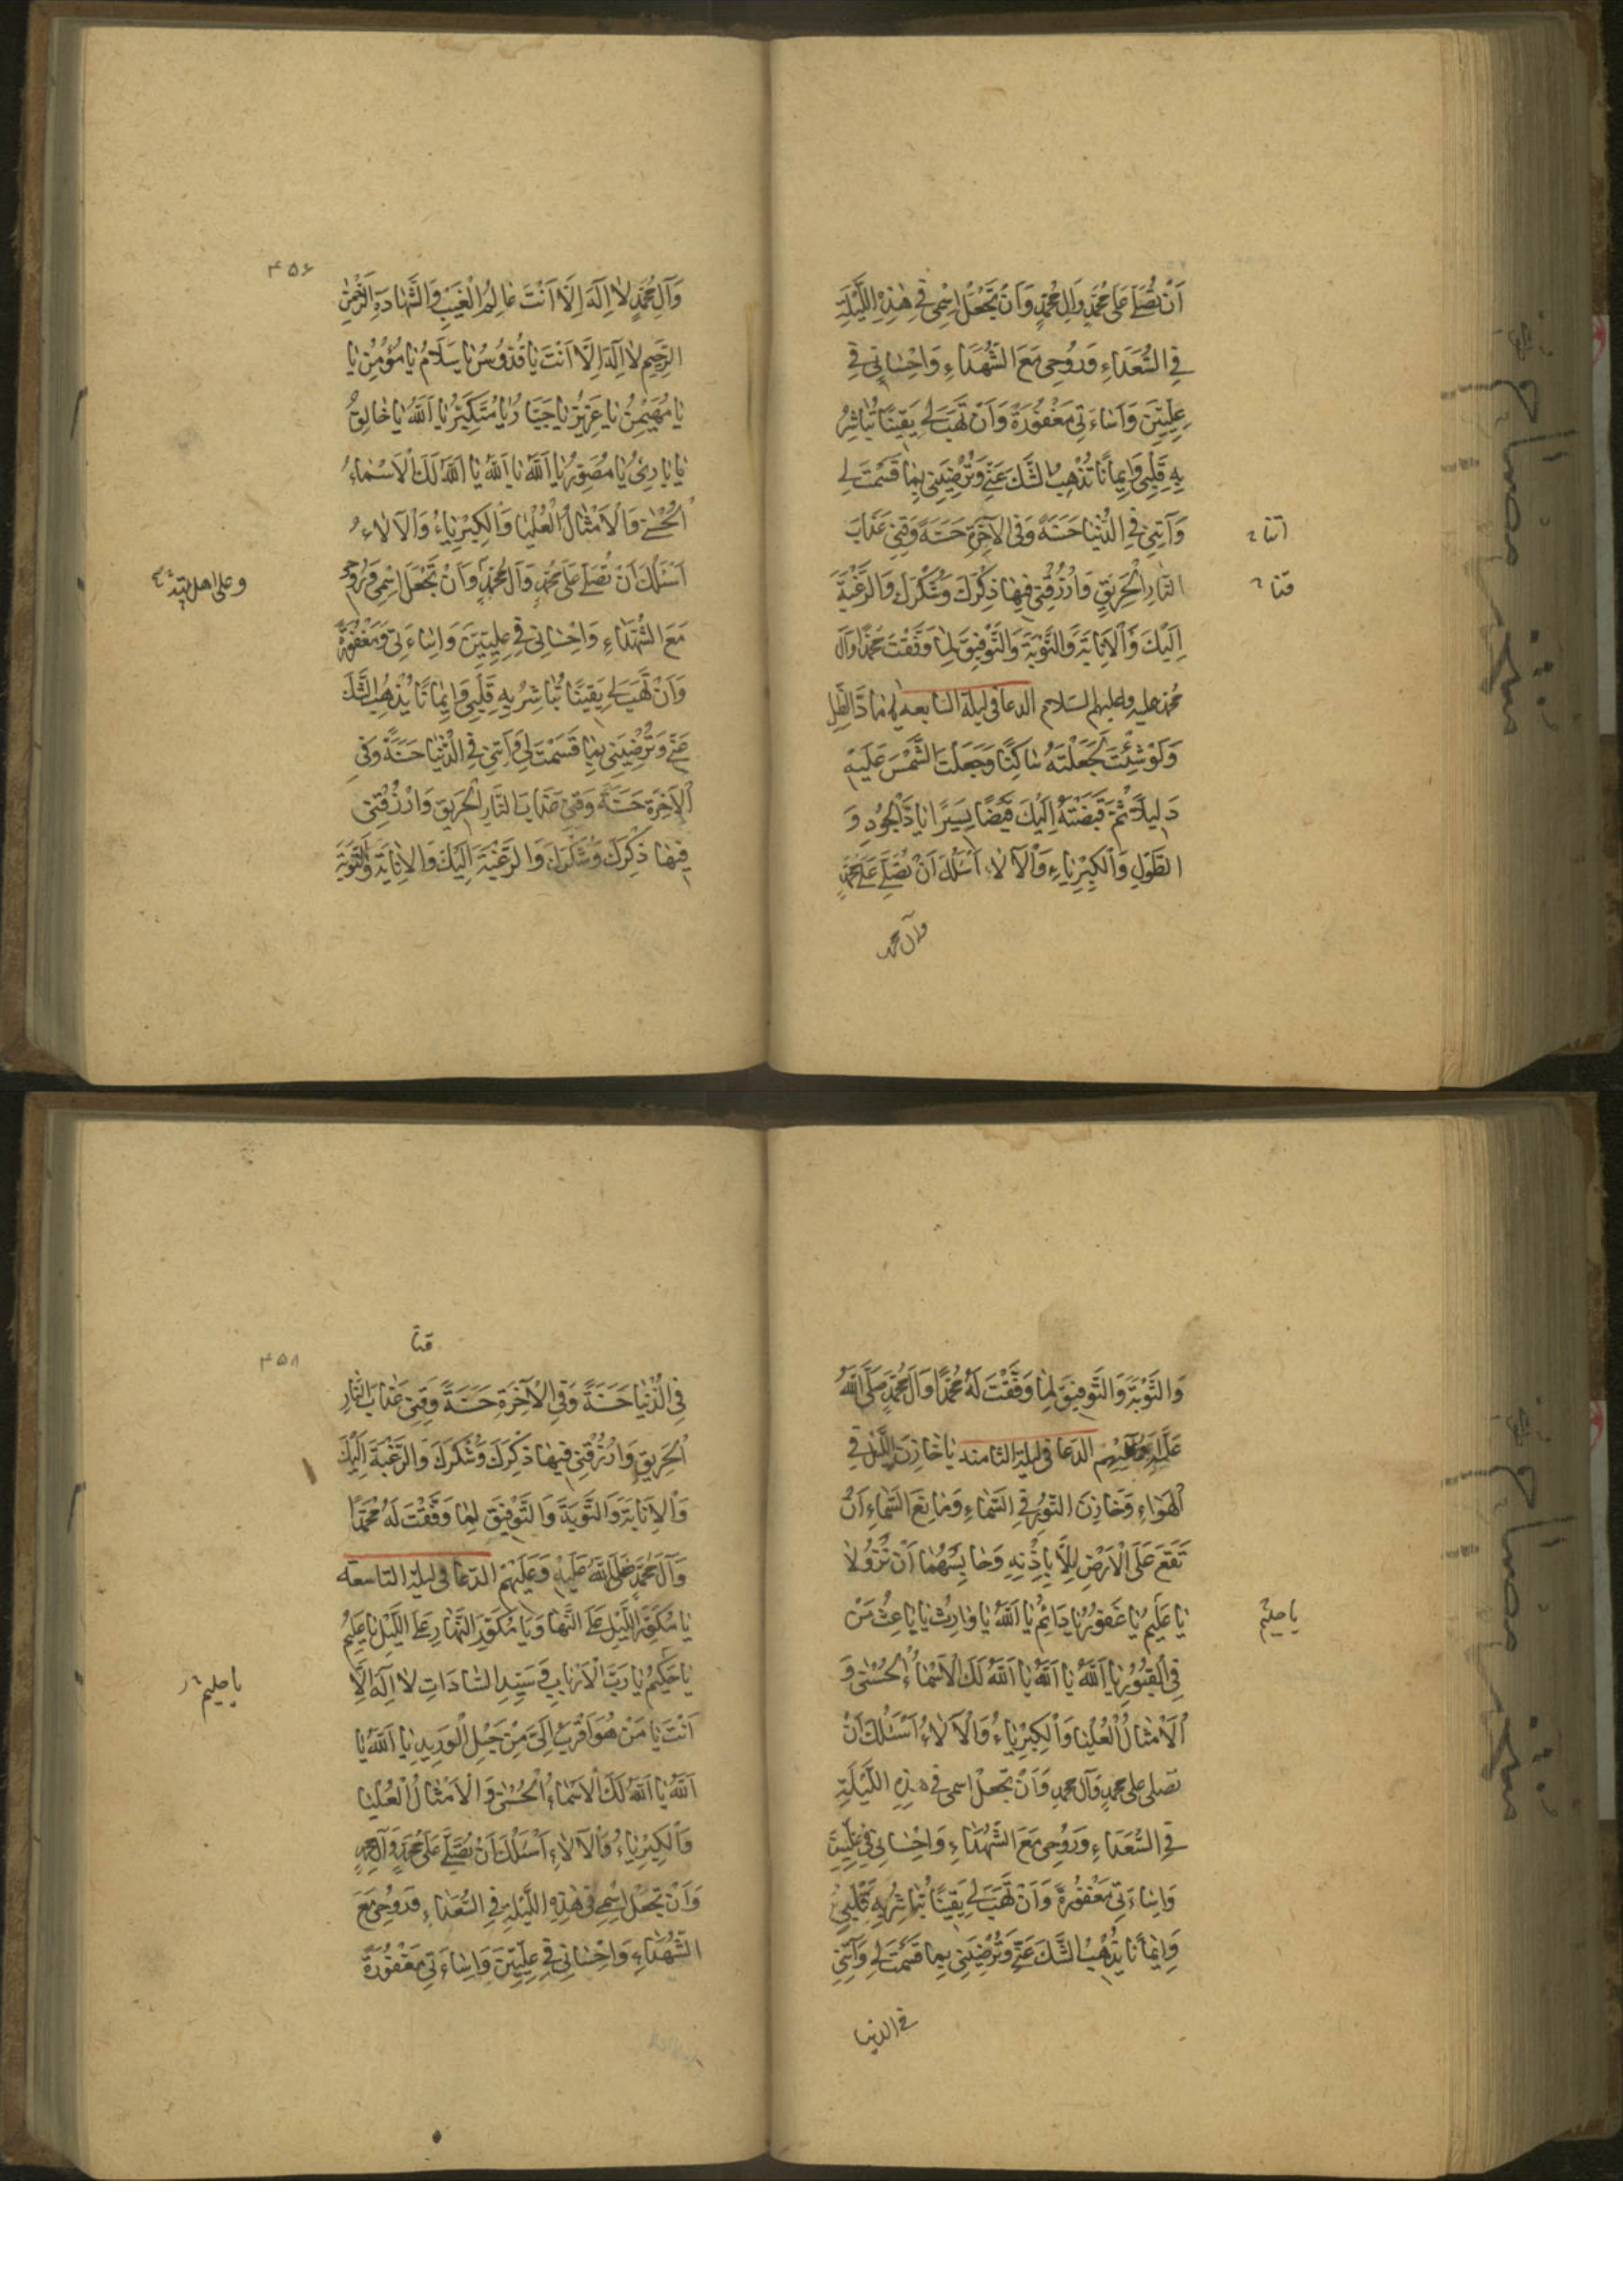 اَنْ تُصَلِّيَ عَلىٰ مُحَمَّدٍ وَآلِ مُحَمَّدٍ وَاَنْ تَجْعَلَ اسْمِي فِي هٰذِهِ اللَّيْلَةِ
فِي السُّعَدَاءِ وَرُوحِي مَعَ الشُّهَدَاءِ وَاِحْسٰانِي فِي
عِلِّيِّينَ وَاِسٰاءَتِي مَغْفُورَةً وَاَنْ تَهَبَ لِي يَقِينًا تُبٰاشِرُ
بِهِ قَلْبِي وَاِيمٰانًا يُذْهِبُ الشَّكَّ عَنِّي وَتُرْضِيَنِي بِمٰا قَسَمْتَ لِي
وَآتِنِي فِي الدُّنْيٰا حَسَنَةً وَفِي الْآخِرَةِ حَسَنَةً وَقِنِي عَذٰابَ
آتنا
النّٰارِ الْحَرِيقِ وَارْزُقْنِي فِيهٰا ذِكْرَكَ وَشُكْرَكَ وَالرَّغْبَةَ
قنا
اِلَيْكَ وَالْاِنٰابَةَ وَالتَّوْبَةَ وَالتَّوْفِيقَ لِمٰا وَفَّقْتَ مُحَمَّدًا وَآلَ
مُحَمَّد عليه وعليهم السلام الدعا فى ليلة السابعه يٰا مٰادَّ الظِّلِّ
وَلَوْ شِئْتَ لَجَعَلْتَهُ سٰاكِنًا وَجَعَلْتَ الشَّمْسَ عَلَيْهِ
دَلِيلًا ثُمَّ قَبَضْتَهُ اِلَيْكَ قَبْضًا يَسِيرًا يٰا ذَا الْجُودِ وَ
الطَّوْلِ وَالْكِبْرِيٰاءِ وَالْآلٰاءِ اَسْئَلُكَ اَنْ تُصَلِّيَ عَلىٰ مُحَمَّدٍ
وآل محمد
۴۵۶
وَآلِ مُحَمَّدٍ لٰا اِلٰهَ اِلَّا اَنْتَ عٰالِمُ الْغَيْبِ وَالشَّهٰادَةِ الرَّحْمٰنُ
الرَّحِيمُ لٰا اِلٰهَ اِلَّا اَنْتَ يٰا قُدُّوسُ يٰا سَلَامُ يٰا مُؤْمِنُ يٰا
يٰا مُهَيْمِنُ يٰا عَزِيزُ يٰا جَبّٰارُ يٰا مُتَكَبِّرُ يٰا اَللّٰهُ يٰا خٰالِقُ
يٰا بٰارِئُ يٰا مُصَوِّرُ يٰا اَللّٰهُ يٰا اَللّٰهُ يٰا اَللّٰهُ لَكَ الْاَسْمٰاءُ
الْحُسْنىٰ وَالْاَمْثٰالُ الْعُلْيٰا وَالْكِبْرِيٰاءُ وَالْآلٰاءُ
اَسْئَلُكَ اَنْ تُصَلِّيَ عَلىٰ مُحَمَّدٍ وَآلِ مُحَمَّدٍ وَاَنْ تَجْعَلَ اسْمِي وَرُوحِي
وعلى اهل بيته
مَعَ الشُّهَدٰاءِ وَاِحْسٰانِي فِي عِلِّيِّينَ وَاِسٰاءَتِي مَغْفُورَةً
وَاَنْ تَهَبَ لِي يَقِينًا تُبٰاشِرُ بِهِ قَلْبِي وَاِيمٰانًا يُذْهِبُ الشَّكَّ
عَنِّي وَتُرْضِيَنِي بِمٰا قَسَمْتَ لِي وَآتِنِي فِي الدُّنْيٰا حَسَنَةً وَفِي
الْآخِرَةِ حَسَنَةً وَقِنِي عَذٰابَ النّٰارِ الْحَرِيقِ وَارْزُقْنِي
فِيهٰا ذِكْرَكَ وَشُكْرَكَ وَالرَّغْبَةَ اِلَيْكَ وَالْاِنٰابَةَ وَالتَّوْبَةَ
وَالتَّوْبَةَ وَالتَّوْفِيقَ لِمٰا وَفَّقْتَ لَهُ مُحَمَّدًا وَآلَ مُحَمَّدٍ صَلَّى اللّٰهُ
عَلَيْهِ وَعَلَيْهِمْ الدعا فى ليلة الثامنه يٰا خٰازِنَ اللَّيْلِ فِي
الْهَوٰاءِ وَخٰازِنَ النُّورِ فِي السَّمٰاءِ وَمٰانِعَ السَّمٰاءِ اَنْ
تَقَعَ عَلَى الْاَرْضِ اِلّٰا بِاِذْنِهِ وَحٰابِسَهُمٰا اَنْ تَزُولٰا
يٰا عَلِيمُ يٰا غَفُورُ يٰا دٰائِمُ يٰا اَللّٰهُ يٰا وٰارِثُ يٰا بٰاعِثُ مَنْ
يا حليم
فِي الْقُبُورِ يٰا اَللّٰهُ يٰا اَللّٰهُ يٰا اَللّٰهُ لَكَ الْاَسْمٰاءُ الْحُسْنىٰ وَ
الْاَمْثٰالُ الْعُلْيٰا وَالْكِبْرِيٰاءُ وَالْآلٰاءُ اَسْئَلُكَ اَنْ
تصلى على محمدٍ وَآل محمدٍ وَاَنْ تجعلَ اسمى فى هذِهِ اللَّيْلَةِ
فِي السُّعَدَاءِ وَرُوحِي مَعَ الشُّهَدٰاءِ وَاِحْسٰانِي فِي عِلِّيِّينَ
وَاِسٰاءَتِي مَغْفُورَةً وَاَنْ تَهَبَ لِي يَقِينًا تُبٰاشِرُ بِهِ قَلْبِي
وَاِيمٰانًا يُذْهِبُ الشَّكَّ عَنِّي وَتُرْضِيَنِي بِمٰا قَسَمْتَ لِي وَآتِنِي
فى الدنيا
قنا
۴۵۸
فِي الدُّنْيٰا حَسَنَةً وَفِي الْآخِرَةِ حَسَنَةً وَقِنِي عَذٰابَ النّٰارِ
الْحَرِيقِ وَارْزُقْنِي فِيهٰا ذِكْرَكَ وَشُكْرَكَ وَالرَّغْبَةَ اِلَيْكَ
وَالْاِنٰابَةَ وَالتَّوْبَةَ وَالتَّوْفِيقَ لِمٰا وَفَّقْتَ لَهُ مُحَمَّدًا
وَآلَ مُحَمَّدٍ صَلَّى اللّٰهُ عَلَيْهِ وَعَلَيْهِمْ الدعا فى ليلة التاسعه
يٰا مُكَوِّرَ اللَّيْلِ عَلَى النَّهٰارِ وَيٰا مُكَوِّرَ النَّهٰارِ عَلَى اللَّيْلِ يٰا عَلِيمُ
يٰا حَكِيمُ يٰا رَبَّ الْاَرْبٰابِ وَسَيِّدَ السّٰادَاتِ لٰا اِلٰهَ اِلَّا
يا حليم
اَنْتَ يٰا مَنْ هُوَ اَقْرَبُ اِلَيَّ مِنْ حَبْلِ الْوَرِيدِ يٰا اَللّٰهُ يٰا
اَللّٰهُ يٰا اَللّٰهُ لَكَ الْاَسْمٰاءُ الْحُسْنىٰ وَالْاَمْثٰالُ الْعُلْيٰا
وَالْكِبْرِيٰاءُ وَالْآلٰاءِ اَسْئَلُكَ اَنْ تُصَلِّيَ عَلىٰ مُحَمَّدٍ وَآلِ مُحَمَّدٍ
وَاَنْ تَجْعَلَ اسْمِي فِي هٰذِهِ اللَّيْلَةِ فِي السُّعَدٰاءِ وَرُوحِي مَعَ
الشُّهَدٰاءِ وَاِحْسٰانِي فِي عِلِّيِّينَ وَاِسٰاءَتِي مَغْفُورَةً